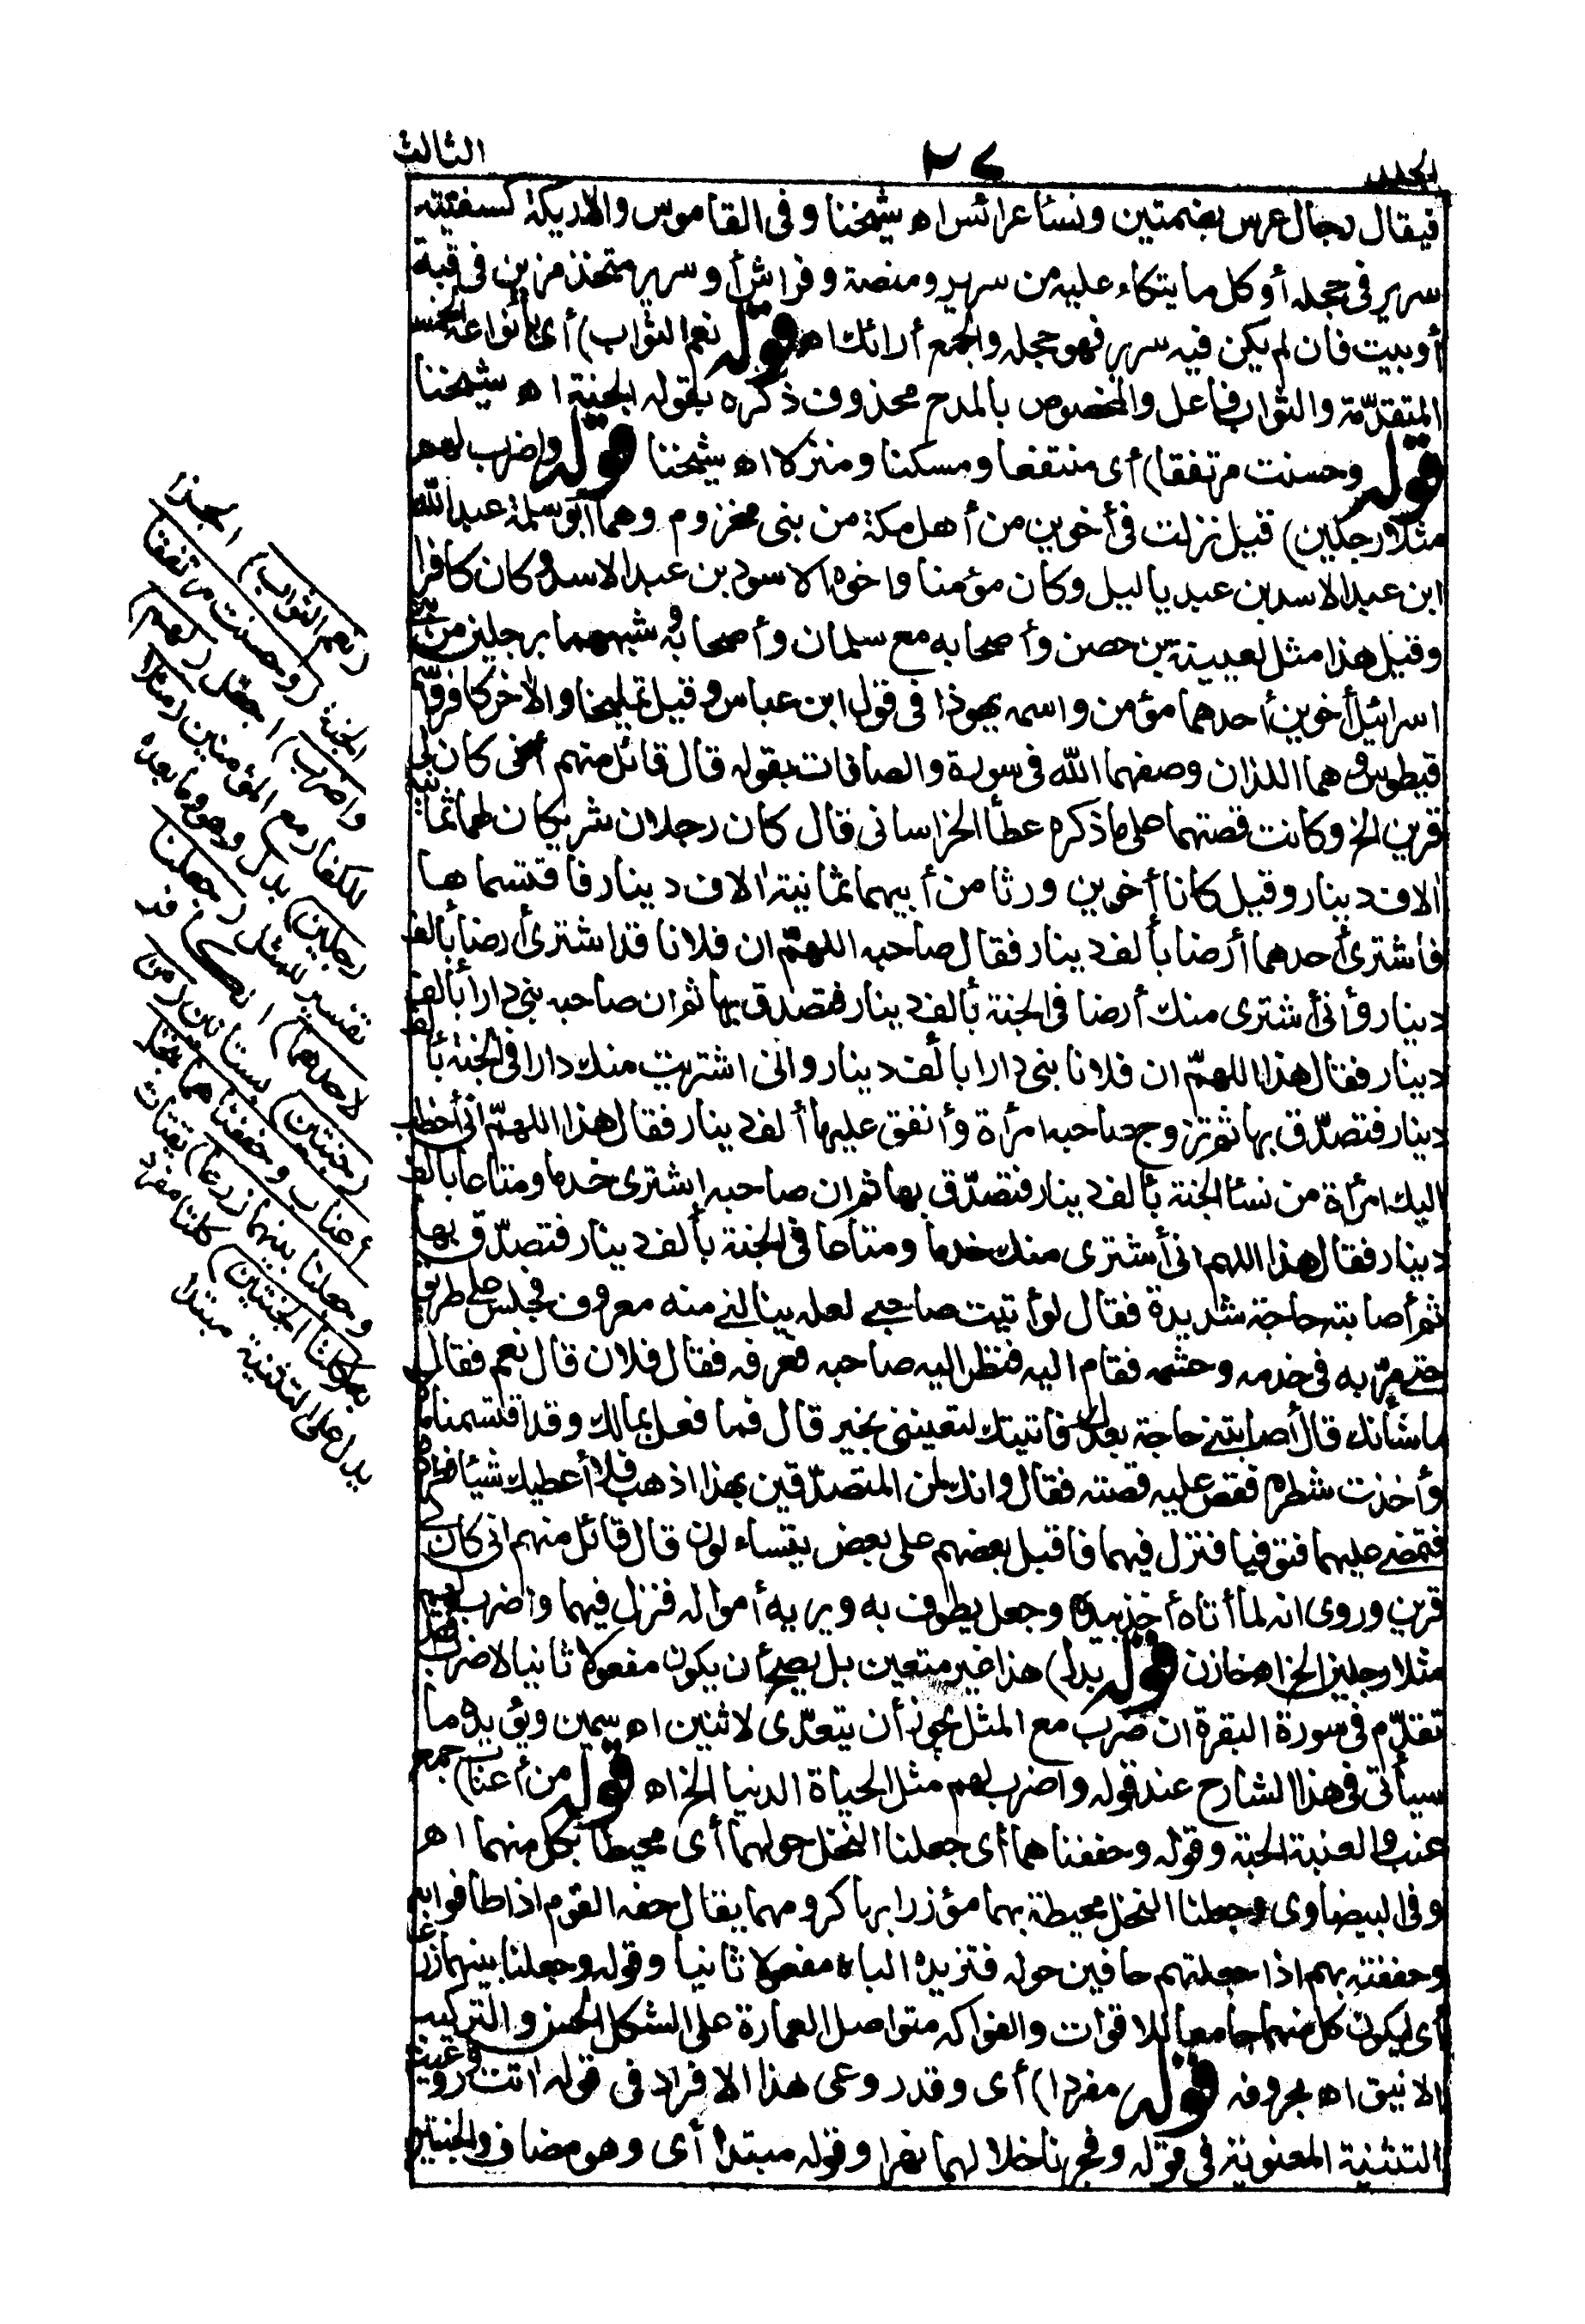 الجلد ٢٤ الثالث
فيقال رجال عرس بضمتين ونسأ عرائس اه شيخنا وفى القاموس والاريكة كسفينة
سرير فى حجلة أو كل ما يتكاء عليه من سرير ومنصة وفراش أو سرير متخذ مزين فى قبة
أو بيت فان لم يكن فيه سرير فهو حجلة والجمع أرائك اه قوله نعم الثواب) أى بأنواعه الخمسة
المتقدّمة والثواب فاعل والمخصوص بالمدح محذوف ذكره بقوله الجنة اه شيخنا
قوله وحسنت مرتفقا) أى منتفعا ومسكنا ومنزلا اه شيخنا قوله واضرب لهم
مثلا رجلين) قيل نزلت فى أخوين من أهل مكة من بنى مخزوم وهما أبو سلمة عبد الله
ابن عبد الاسد بن عبد ياليل وكان مؤمنا واخوه الاسود بن عبد الاسد وكان كافرا
وقيل هذا مثل لعيينة بن حصن وأصحابه مع سلمان وأصحابه شبههما برجلين من بنى
اسرائيل أخوين أحدهما مؤمن واسمه يهوذا فى قول ابن عباس وقيل تمليخا والآخر كافر
قيطوس وهما اللذان وصفهما الله فى سورة والصافات بقوله قال قائل منهم انى كان لى
قرين الخ وكانت قصتهما على ما ذكره عطأ الخراسانى قال كان رجلان شريكان لهما ثمانية
الاف دينار وقيل كانا أخوين ورثا من أبيهما ثمانية الاف دينار فاقتسماها
فاشترى أحدهما أرضا بألف دينار فقال صاحبه اللهمّ ان فلانا قد اشترى أرضا بألف
دينار وأنى أشترى منك أرضا فى الجنة بألف دينار فتصدق بها ثم ان صاحبه بنى دارا بألف
دينار فقال هذا اللهمّ ان فلانا بنى دارا بألف دينار وانى اشتريت منك دارا فى الجنة بألف
دينار فتصدّق بها ثم تزوج صاحبه امرأة وأنفق عليها ألف دينار فقال هذا اللهمّ انى أخطب
اليك امرأة من نسأ الجنة بألف دينار فتصدّق بها ثم ان صاحبه اشترى خدما ومتاعا بألف
دينار فقال هذا اللهم انى أشترى منك خدما ومتاعا فى الجنة بألف دينار فتصدّق بها
ثم أصابته حاجة شديدة فقال لو أتيت صاحبى لعله ينالنى منه معروف فجلس على طريق
حتى مرّ به فى خدمه وحشمه فقام اليه فنظر اليه صاحبه فعرفه فقال فلان قال نعم فقال
ما شأنك قال أصابتنى حاجة بعدك فاتيتك لتعيننى بخير قال فما فعل بمالك وقد اقتسمنا
وأخذت شطره فقص عليه قصته فقال وانك لمن المتصدّقين بهذا اذهب فلا أعطيك شيئا
فقضى عليهما فتوفيا فنزل فيهما فاقبل بعضهم على بعض يتساء لون قال قائل منهم انى كان لى
قرين وروى انه لما أتاه أخذ بيده وجعل يطوف به ويريه أمواله فنزل فيهما واضرب لهم
مثلا رجلين الخ اه خازن قوله بدل) هذا غير متعين بل يصح أن يكون مفعولا ثانيا لاضرب
تقدّم فى سورة البقرة ان ضرب مع المثل يجوز أن يتعدّى لاثنين اه سمين ويؤيده ما
سيأتى فى هذا الشارح عند قوله واضرب لهم مثل الحياة الدنيا الخ اه قوله من أعناب) جمع
عنب والعنبة الحبة وقوله وحففناهما أى جعلنا النخل حولهما أى محيطا بكل منهما اه
وفى البيضاوى وجعلنا النخل محيطة بهما مؤزرا بها كرومهما يقال حفه القوم اذا طافوا به
وحففته بهم اذا جعلتهم حافين حوله فتزيده الباء مفعولا ثانيا وقوله وجعلنا بينهما زرعا
أى ليكون كل منهما جامعا للاقوات والفواكه متواصل العمارة على الشكل الحسن والتركيب
الانيق اه بحروفه قوله مفرد) أى وقد روعى هذا الافراد فى قوله اتت وروعيت
التثنية المعنوية فى قوله وفجرنا خلالهما نهرا وقوله مبتدأ أى وهو مضاف والجنتين
(نعم الثواب) الجزا
الجنة (وحسنت مرتفقا
واضرب) اجعل (لهم)
للكفار مع المؤمنين (مثلا
رجلين) بدل وهو وما بعده
تفسير للمثل (جعلنا
لاحدهما) الكافر
(جنتين) بستانين (من
أعناب وحففناهما بنخل
وجعلنا بينهما زرعا) يقتات
به (كلتا الجنتين) كلتا مفرد
يدل على التثنية مبتدا